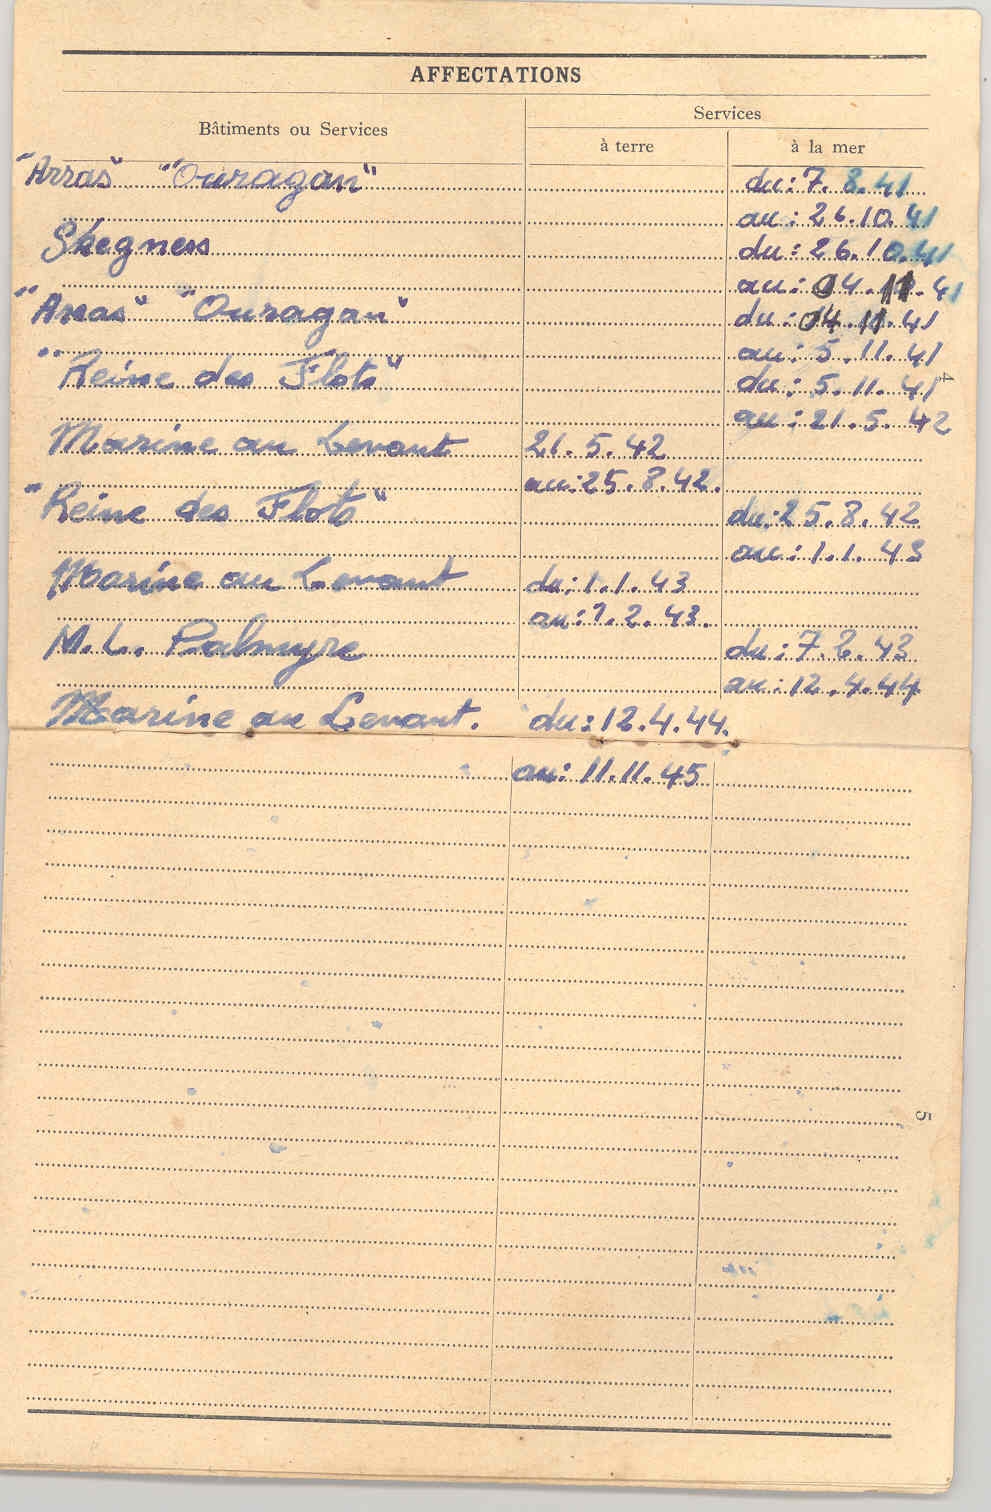 AFFECTATIONS
Bâtiments ou Services
Services
à terre
à la mer
"Arras" "Ouragan" du: 7. 8. 41
au: 26.10.41
Skegness du: 26.10.41
au: 04.11.41
"Arras" "Ouragan" du: 04.11.41
au: 5.11.41
"Reine des Flots" du: 5.11.41
au: 21.5.42
Marine au Levant 21.5.42
au: 25.8.42.
"Reine des Flots" du: 25.8.42
au: 1.1.43
Marine au Levant du: 1.1.43
au: 7.2.43.
M.L. Palmyre du: 7.2.43
au: 12.4.44
Marine au Levant. du: 12.4.44.
au: 11.11.45
4
5